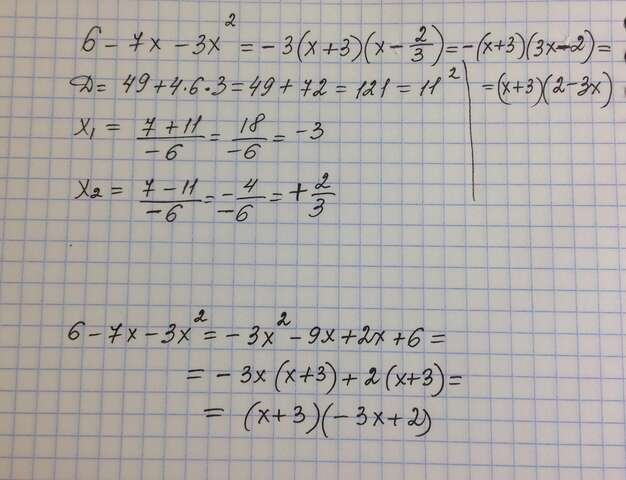 6 - 7x - 3x² = -3(x+3)(x - 2/3) = -(x+3)(3x-2) =
D = 49 + 4·6·3 = 49 + 72 = 121 = 11² | = (x+3)(2-3x)
x₁ = (7+11)/(-6) = 18/(-6) = -3
x₂ = (7-11)/(-6) = (-4)/(-6) = +2/3
6 - 7x - 3x² = -3x² - 9x + 2x + 6 =
= -3x(x+3) + 2(x+3) =
= (x+3)(-3x+2)